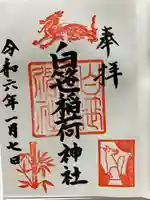 奉拝
白笹稲荷神社
令和六年一月七日